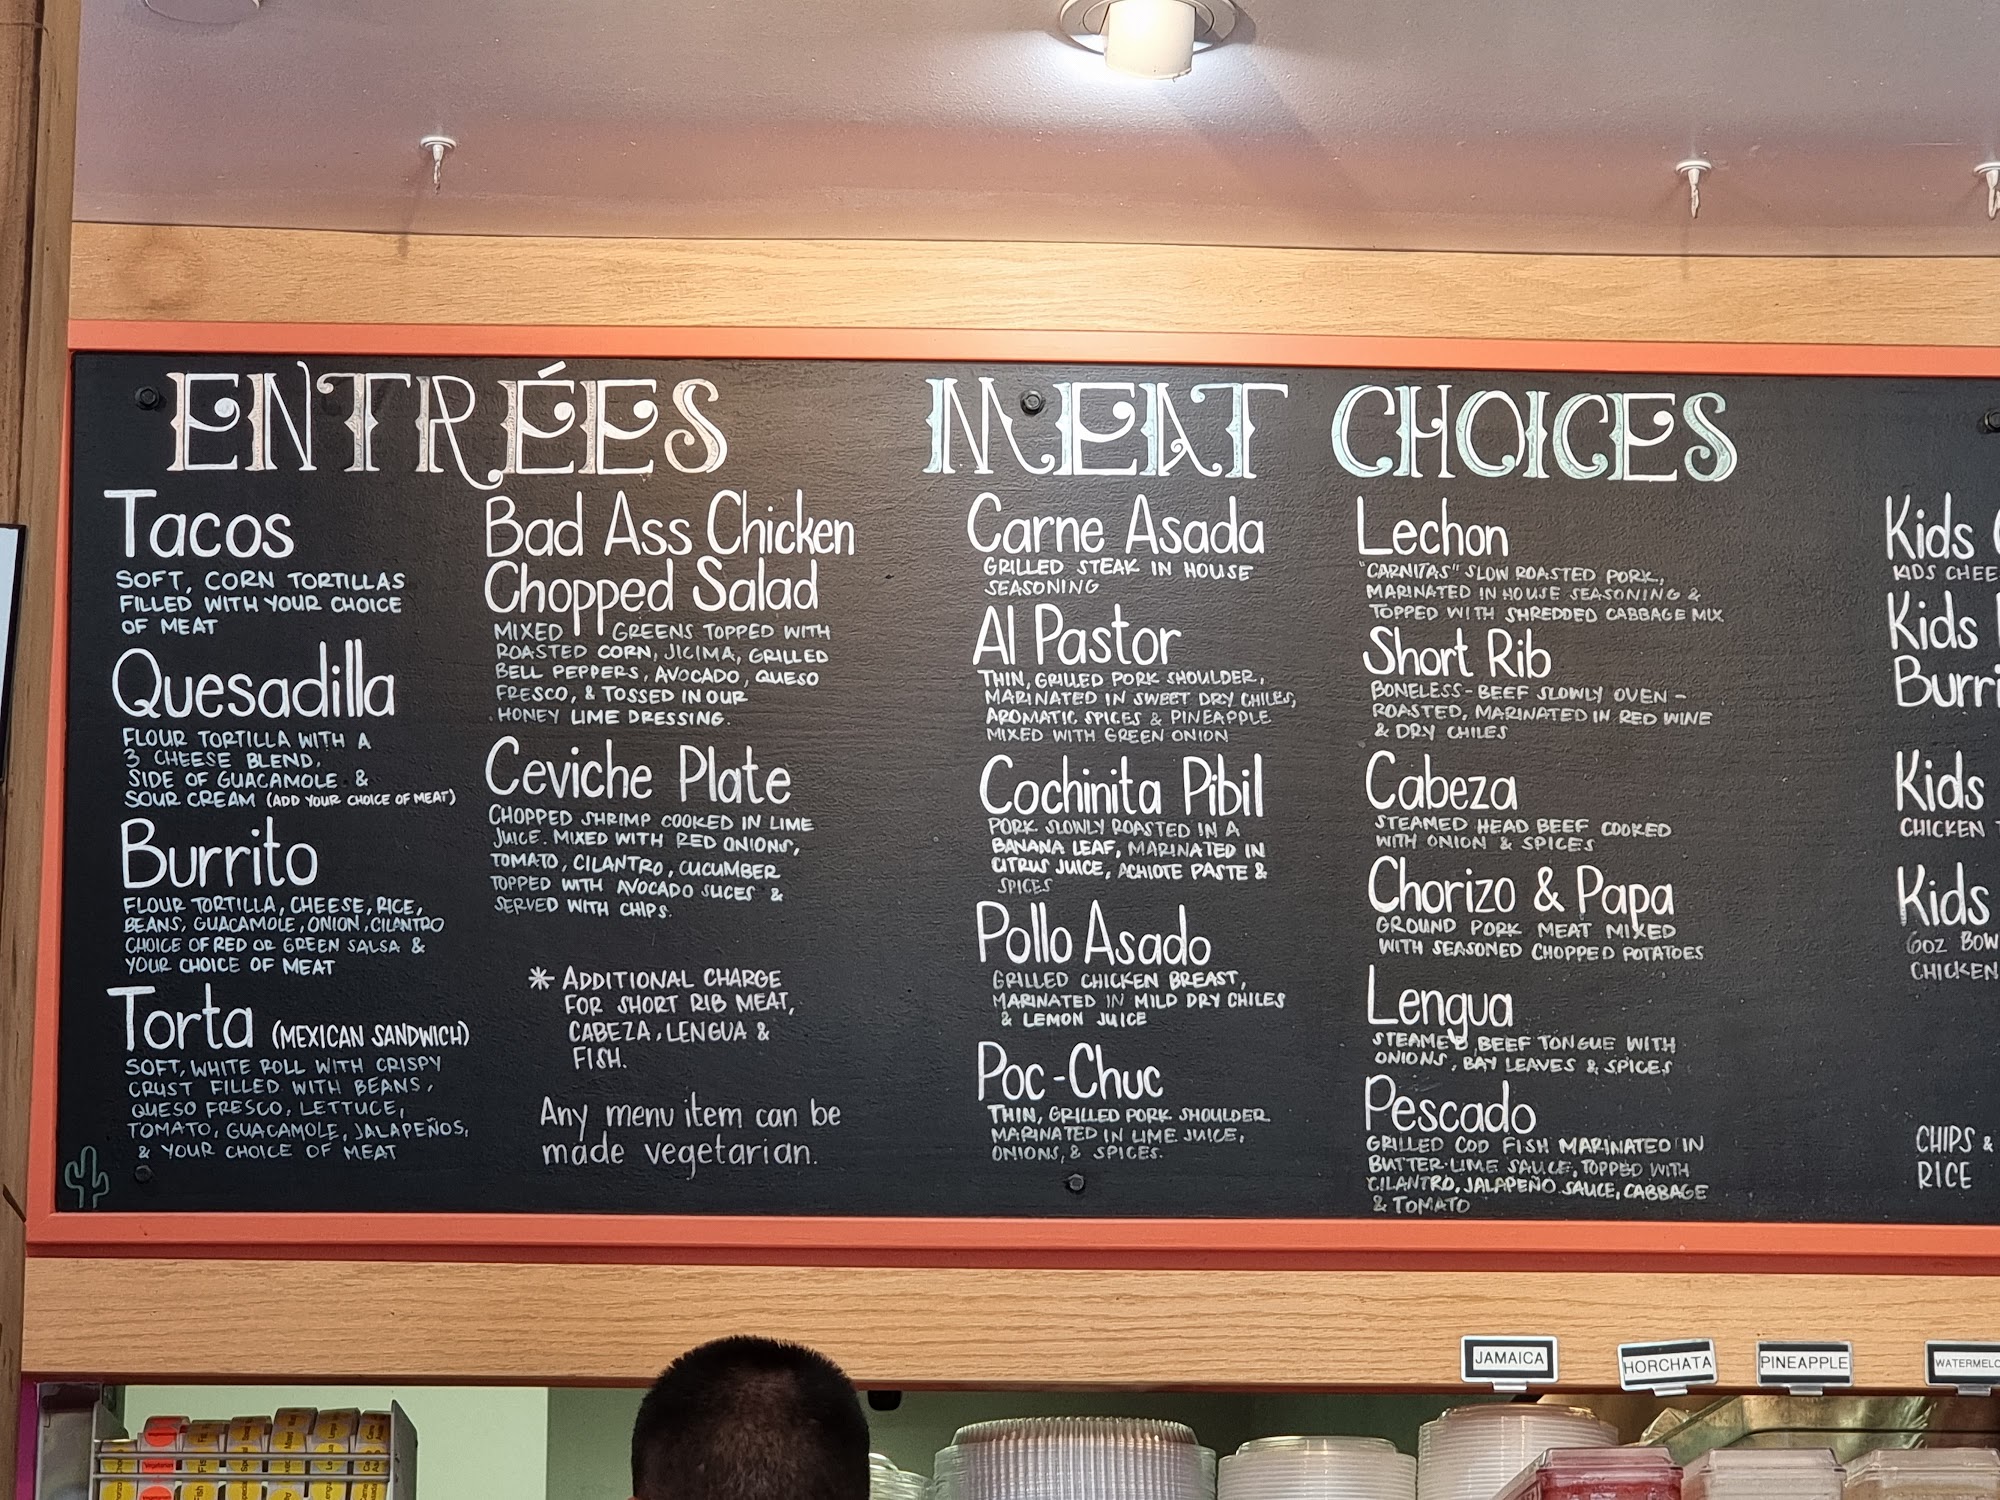 ENTRÉES
Tacos
SOFT, CORN TORTILLAS
FILLED WITH YOUR CHOICE
OF MEAT
Quesadilla
FLOUR TORTILLA WITH A
3 CHEESE BLEND,
SIDE OF GUACAMOLE &
SOUR CREAM (ADD YOUR CHOICE OF MEAT)
Burrito
FLOUR TORTILLA, CHEESE, RICE,
BEANS, GUACAMOLE, ONION, CILANTRO
CHOICE OF RED OR GREEN SALSA &
YOUR CHOICE OF MEAT
Torta (MEXICAN SANDWICH)
SOFT, WHITE ROLL WITH CRISPY
CRUST FILLED WITH BEANS,
QUESO FRESCO, LETTUCE,
TOMATO, GUACAMOLE, JALAPEÑOS,
& YOUR CHOICE OF MEAT
Bad Ass Chicken
Chopped Salad
MIXED GREENS TOPPED WITH
ROASTED CORN, JICIMA, GRILLED
BELL PEPPERS, AVOCADO, QUESO
FRESCO, & TOSSED IN OUR
HONEY LIME DRESSING.
Ceviche Plate
CHOPPED SHRIMP COOKED IN LIME
JUICE. MIXED WITH RED ONIONS,
TOMATO, CILANTRO, CUCUMBER
TOPPED WITH AVOCADO SLICES &
SERVED WITH CHIPS.
* ADDITIONAL CHARGE
FOR SHORT RIB MEAT,
CABEZA, LENGUA &
FISH.
Any menu item can be
made vegetarian.
MEAT CHOICES
Carne Asada
GRILLED STEAK IN HOUSE
SEASONING
Al Pastor
THIN, GRILLED PORK SHOULDER,
MARINATED IN SWEET DRY CHILES,
AROMATIC SPICES & PINEAPPLE
MIXED WITH GREEN ONION
Cochinita Pibil
PORK SLOWLY ROASTED IN A
BANANA LEAF, MARINATED IN
CITRUS JUICE, ACHIOTE PASTE &
SPICES
Pollo Asado
GRILLED CHICKEN BREAST,
MARINATED IN MILD DRY CHILES
& LEMON JUICE
Poc-Chuc
THIN, GRILLED PORK SHOULDER
MARINATED IN LIME JUICE,
ONIONS, & SPICES.
Lechon
"CARNITAS" SLOW ROASTED PORK,
MARINATED IN HOUSE SEASONING &
TOPPED WITH SHREDDED CABBAGE MIX
Short Rib
BONELESS-BEEF SLOWLY OVEN-
ROASTED, MARINATED IN RED WINE
& DRY CHILES
Cabeza
STEAMED HEAD BEEF COOKED
WITH ONION & SPICES
Chorizo & Papa
GROUND PORK MEAT MIXED
WITH SEASONED CHOPPED POTATOES
Lengua
STEAMED BEEF TONGUE WITH
ONIONS, BAY LEAVES & SPICES
Pescado
GRILLED COD FISH MARINATED IN
BUTTER-LIME SAUCE, TOPPED WITH
CILANTRO, JALAPEÑO SAUCE, CABBAGE
& TOMATO
Kids
KIDS CHEE
Kids
Burri
Kids
CHICKEN
Kids
6OZ BOW
CHICKEN
CHIPS &
RICE
JAMAICA
HORCHATA
PINEAPPLE
WATERMELO